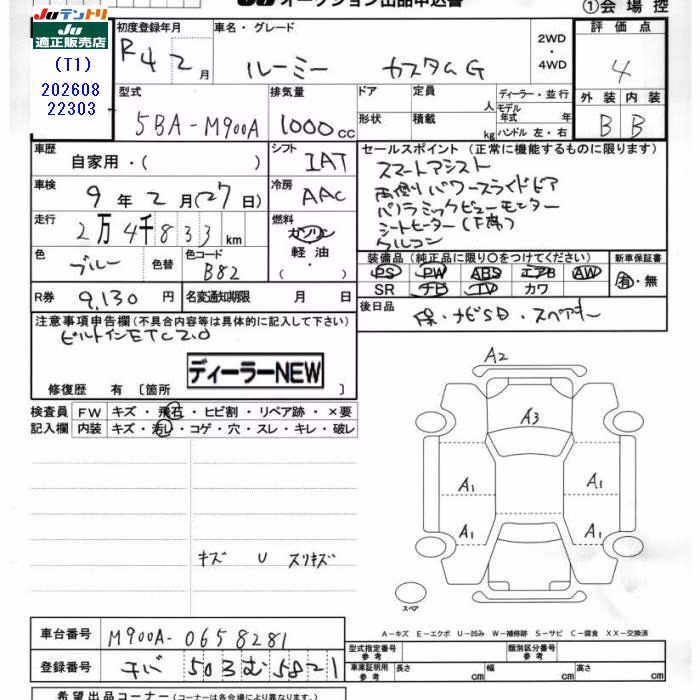 JUテントリ
適正販売店
(T1)
202608
22303
JU オークション出品申込書
①会場控
初度登録年月 R4 2月
車名・グレード ルーミー カスタムG
2WD・4WD
評価点 4
型式 5BA-M900A
排気量 1000cc
ドア
定員 人
ディーラー・並行
モデル年式 年
形状
積載 kg
ハンドル 左・右
外装 内装
B B
車歴 自家用・( )
シフト IAT
車検 9年2月(27日)
冷房 AAC
走行 2万4千833km
燃料 ガソリン・軽油・( )
色 ブルー 色替
色コード B82
R券 9,130円
名変通知期限 月 日
セールスポイント(正常に機能するものに限ります)
スマートアシスト
両側パワースライドドア
パノラミックビューモニター
シートヒーター(F席)
クルコン
装備品(純正品に限り○をつけてください)
新車保証書
PS PW ABS エアB AW
有・無
SR ナビ TV カワ
後日品 保・ナビSD・スペアキー
注意事項申告欄(不具合内容等は具体的に記入して下さい)
ビルトインETC2.0
ディーラーNEW
修復歴 有〔箇所 〕
検査員記入欄
FW キズ・飛石・ヒビ割・リペア跡・×要
内装 キズ・汚れ・コゲ・穴・スレ・キレ・破レ
A2
A3
A1 A1
A1 A1
キズ U スリキズ
スペア
A-キズ E-エクボ U-凹み W-補修跡 S-サビ C-腐食 XX-交換済
車台番号 M900A-0658281
登録番号 チバ 503 む 5821
型式指定番号 参考
類別区分番号 参考
車庫証明用 参考 長さ cm 幅 cm 高さ cm
希望出品コーナー(コーナーは各会場により異なります)